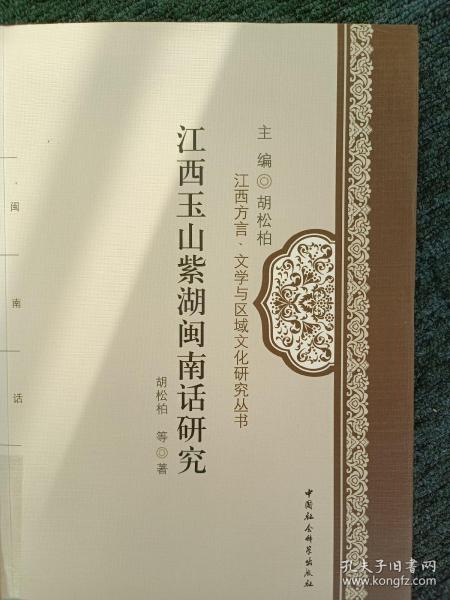 主 编◎胡松柏
江西方言、文学与区域文化研究丛书
江西玉山紫湖闽南话研究
胡松柏 等◎著
中国社会科学出版社
闽
南
话
孔夫子旧书网
www.kongfz.com